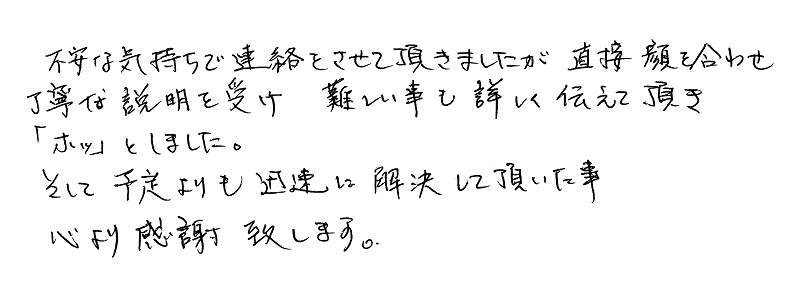 不安な気持ちで連絡をさせて頂きましたが 直接 顔を合わせ
丁寧な説明を受け 難しい事も詳しく伝えて頂き
「ホッ」としました。
そして予定よりも迅速に解決して頂いた事
心より感謝致します。